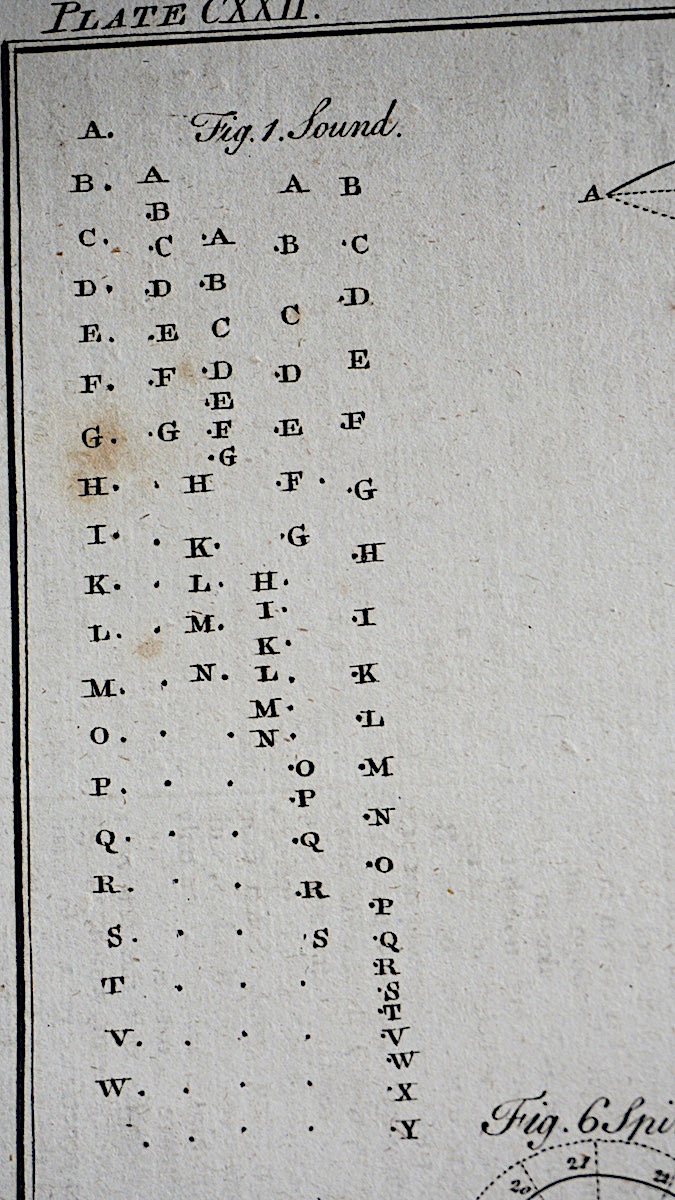 PLATE CXXII.
Fig. 1. Sound.
A.
B. A A B
.B
C. .C .A .B .C
D. .D .B .D
E. .E C C
F. .F .D .D E
.E
G. .G .F .E .F
.G
H. . H .F . .G
I. . K. .G .H
K. . L. H.
I. .I
L. . M. K.
M. . N. L. .K
M. .L
O. . . N.
.O .M
P. . . .P
.N
Q. . . .Q
.O
R. . . .R
.P
S. . . .S .Q
.R
T . . . .S
.T
V. . . . .V
.W
W. . . . .X
. . . . .Y
A
Fig. 6 Spi
20 21 22